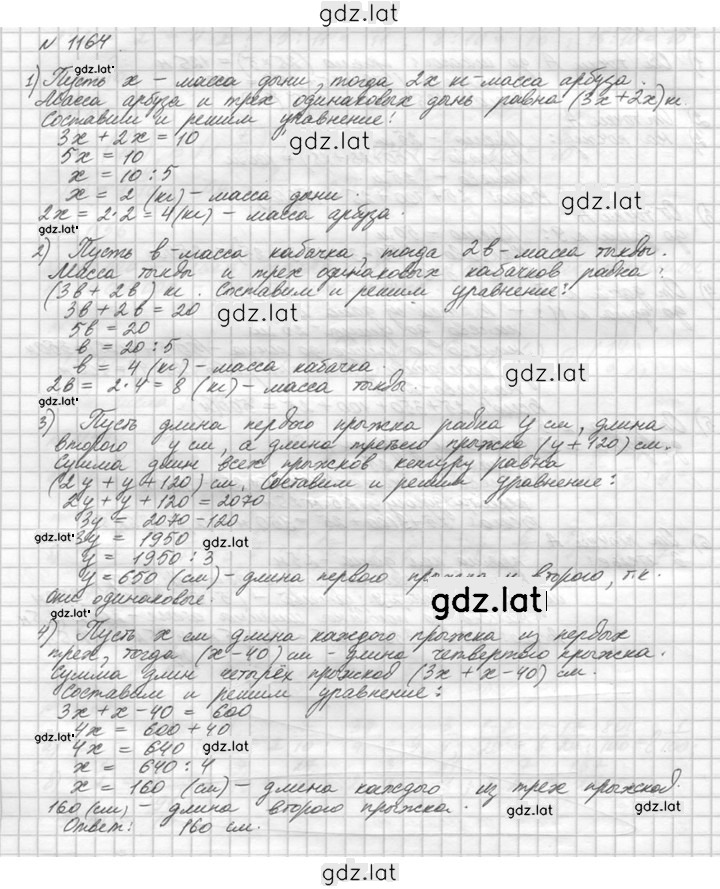 gdz.lat
N 1164
gdz.lat
1) Пусть x – масса дыни, тогда 2x кг – масса арбуза.
Масса арбуза и трех одинаковых дынь равна (3x+2x) кг.
Составим и решим уравнение:
3x + 2x = 10
gdz.lat
5x = 10
x = 10 : 5
x = 2 (кг) – масса дыни.
gdz.lat
2x = 2·2 = 4 (кг) – масса арбуза.
gdz.lat
2) Пусть в – масса кабачка, тогда 2в – масса тыквы.
Масса тыквы и трех одинаковых кабачков равна:
(3в + 2в) кг. Составим и решим уравнение:
3в + 2в = 20
gdz.lat
5в = 20
в = 20 : 5
в = 4 (кг) – масса кабачка.
gdz.lat
2в = 2·4 = 8 (кг) – масса тыквы.
gdz.lat
3) Пусть длина первого прыжка равна y см, длина
второго y см, а длина третьего прыжка (y + 120) см.
Сумма длин всех прыжков кенгуру равна
(2y + y + 120) см. Составим и решим уравнение:
2y + y + 120 = 2070
3y = 2070 – 120
gdz.lat
3y = 1950
gdz.lat
y = 1950 : 3
y = 650 (см) – длина первого прыжка и второго, т.к.
они одинаковые.
gdz.lat
gdz.lat
4) Пусть x см длина каждого прыжка из первых
трех, тогда (x – 40) см – длина четвертого прыжка.
Сумма длин четырёх прыжков (3x + x – 40) см.
Составим и решим уравнение:
3x + x – 40 = 600
4x = 600 + 40
gdz.lat
4x = 640
gdz.lat
x = 640 : 4
x = 160 (см) – длина каждого из трех прыжков.
160 (см) – длина второго прыжка.
gdz.lat
gdz.lat
Ответ: 160 см.
gdz.lat